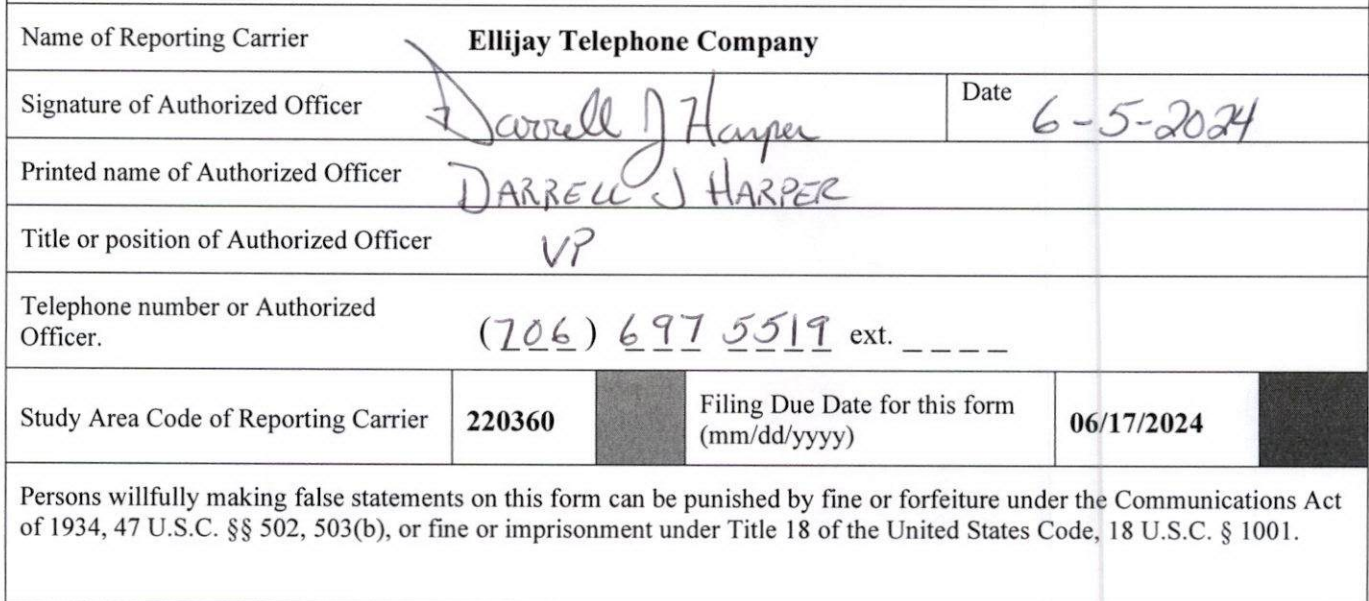 Name of Reporting Carrier Ellijay Telephone Company
Signature of Authorized Officer Darrell J Harper Date 6-5-2024
Printed name of Authorized Officer DARRELL J HARPER
Title or position of Authorized Officer VP
Telephone number or Authorized
Officer. (706) 697 5519 ext. _ _ _ _
Study Area Code of Reporting Carrier 220360 Filing Due Date for this form
(mm/dd/yyyy) 06/17/2024
Persons willfully making false statements on this form can be punished by fine or forfeiture under the Communications Act
of 1934, 47 U.S.C. §§ 502, 503(b), or fine or imprisonment under Title 18 of the United States Code, 18 U.S.C. § 1001.